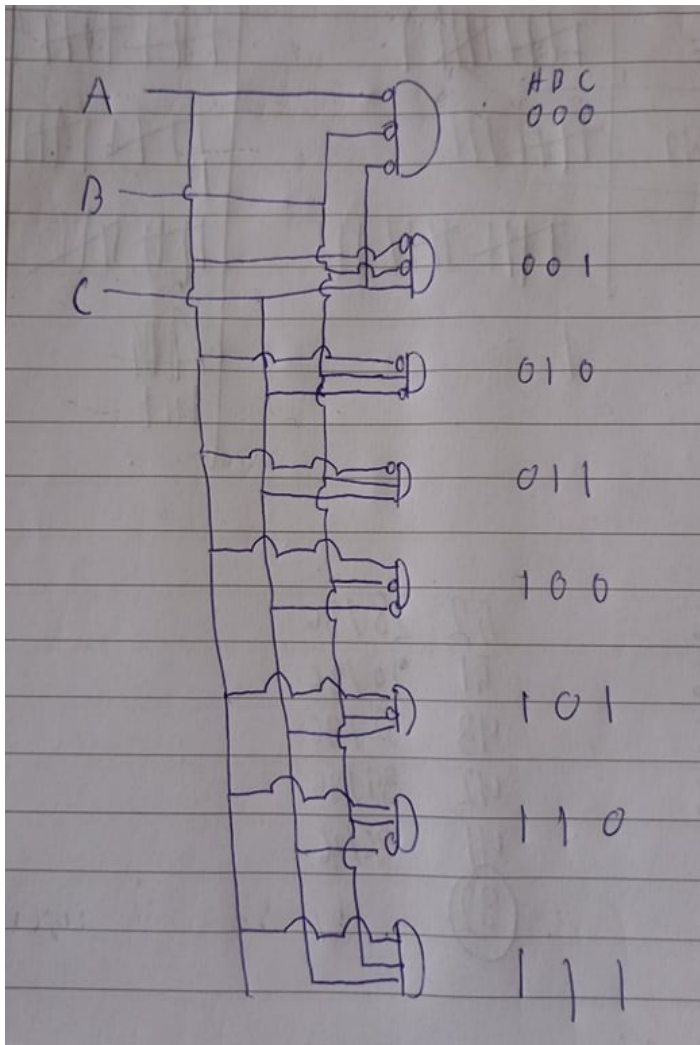 A
A B C
0 0 0
B
0 0 1
C
0 1 0
0 1 1
1 0 0
1 0 1
1 1 0
1 1 1